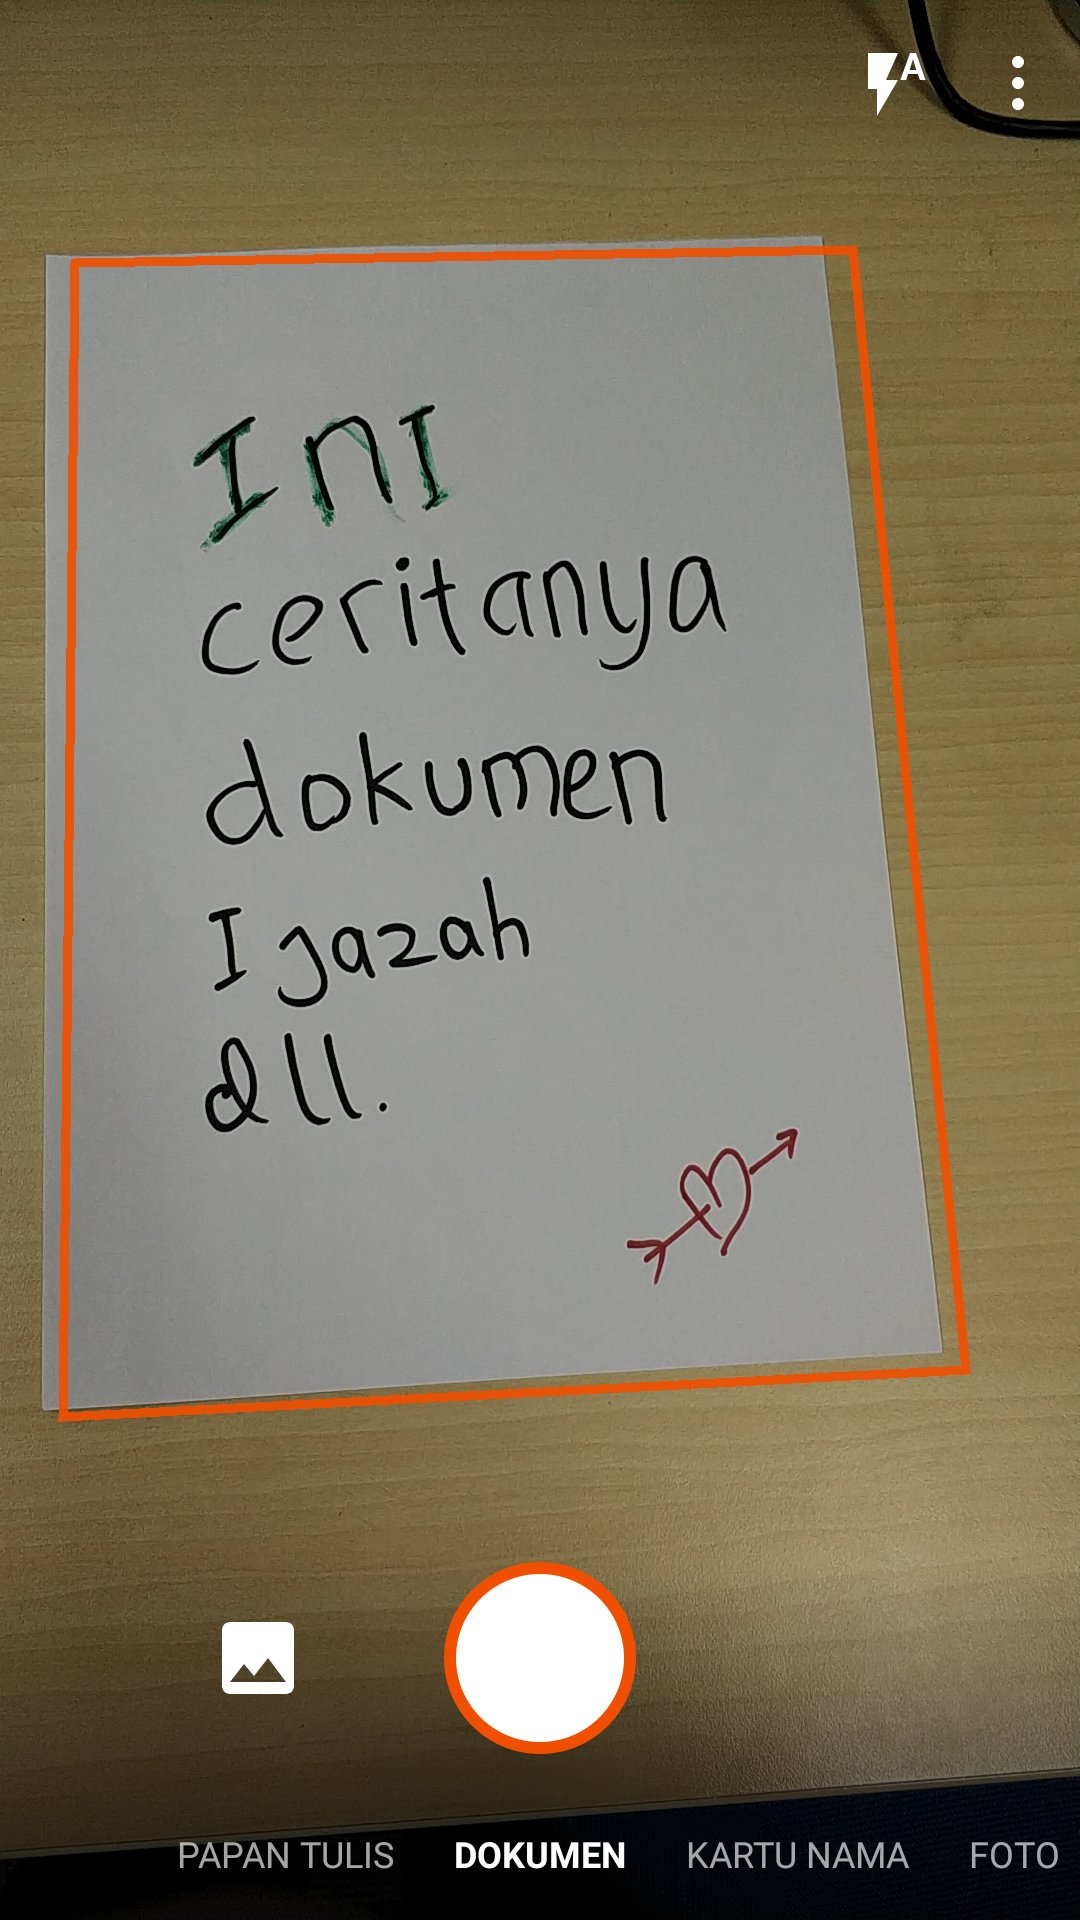 A
Ini
ceritanya
dokumen
Ijazah
dll.
PAPAN TULIS DOKUMEN KARTU NAMA FOTO